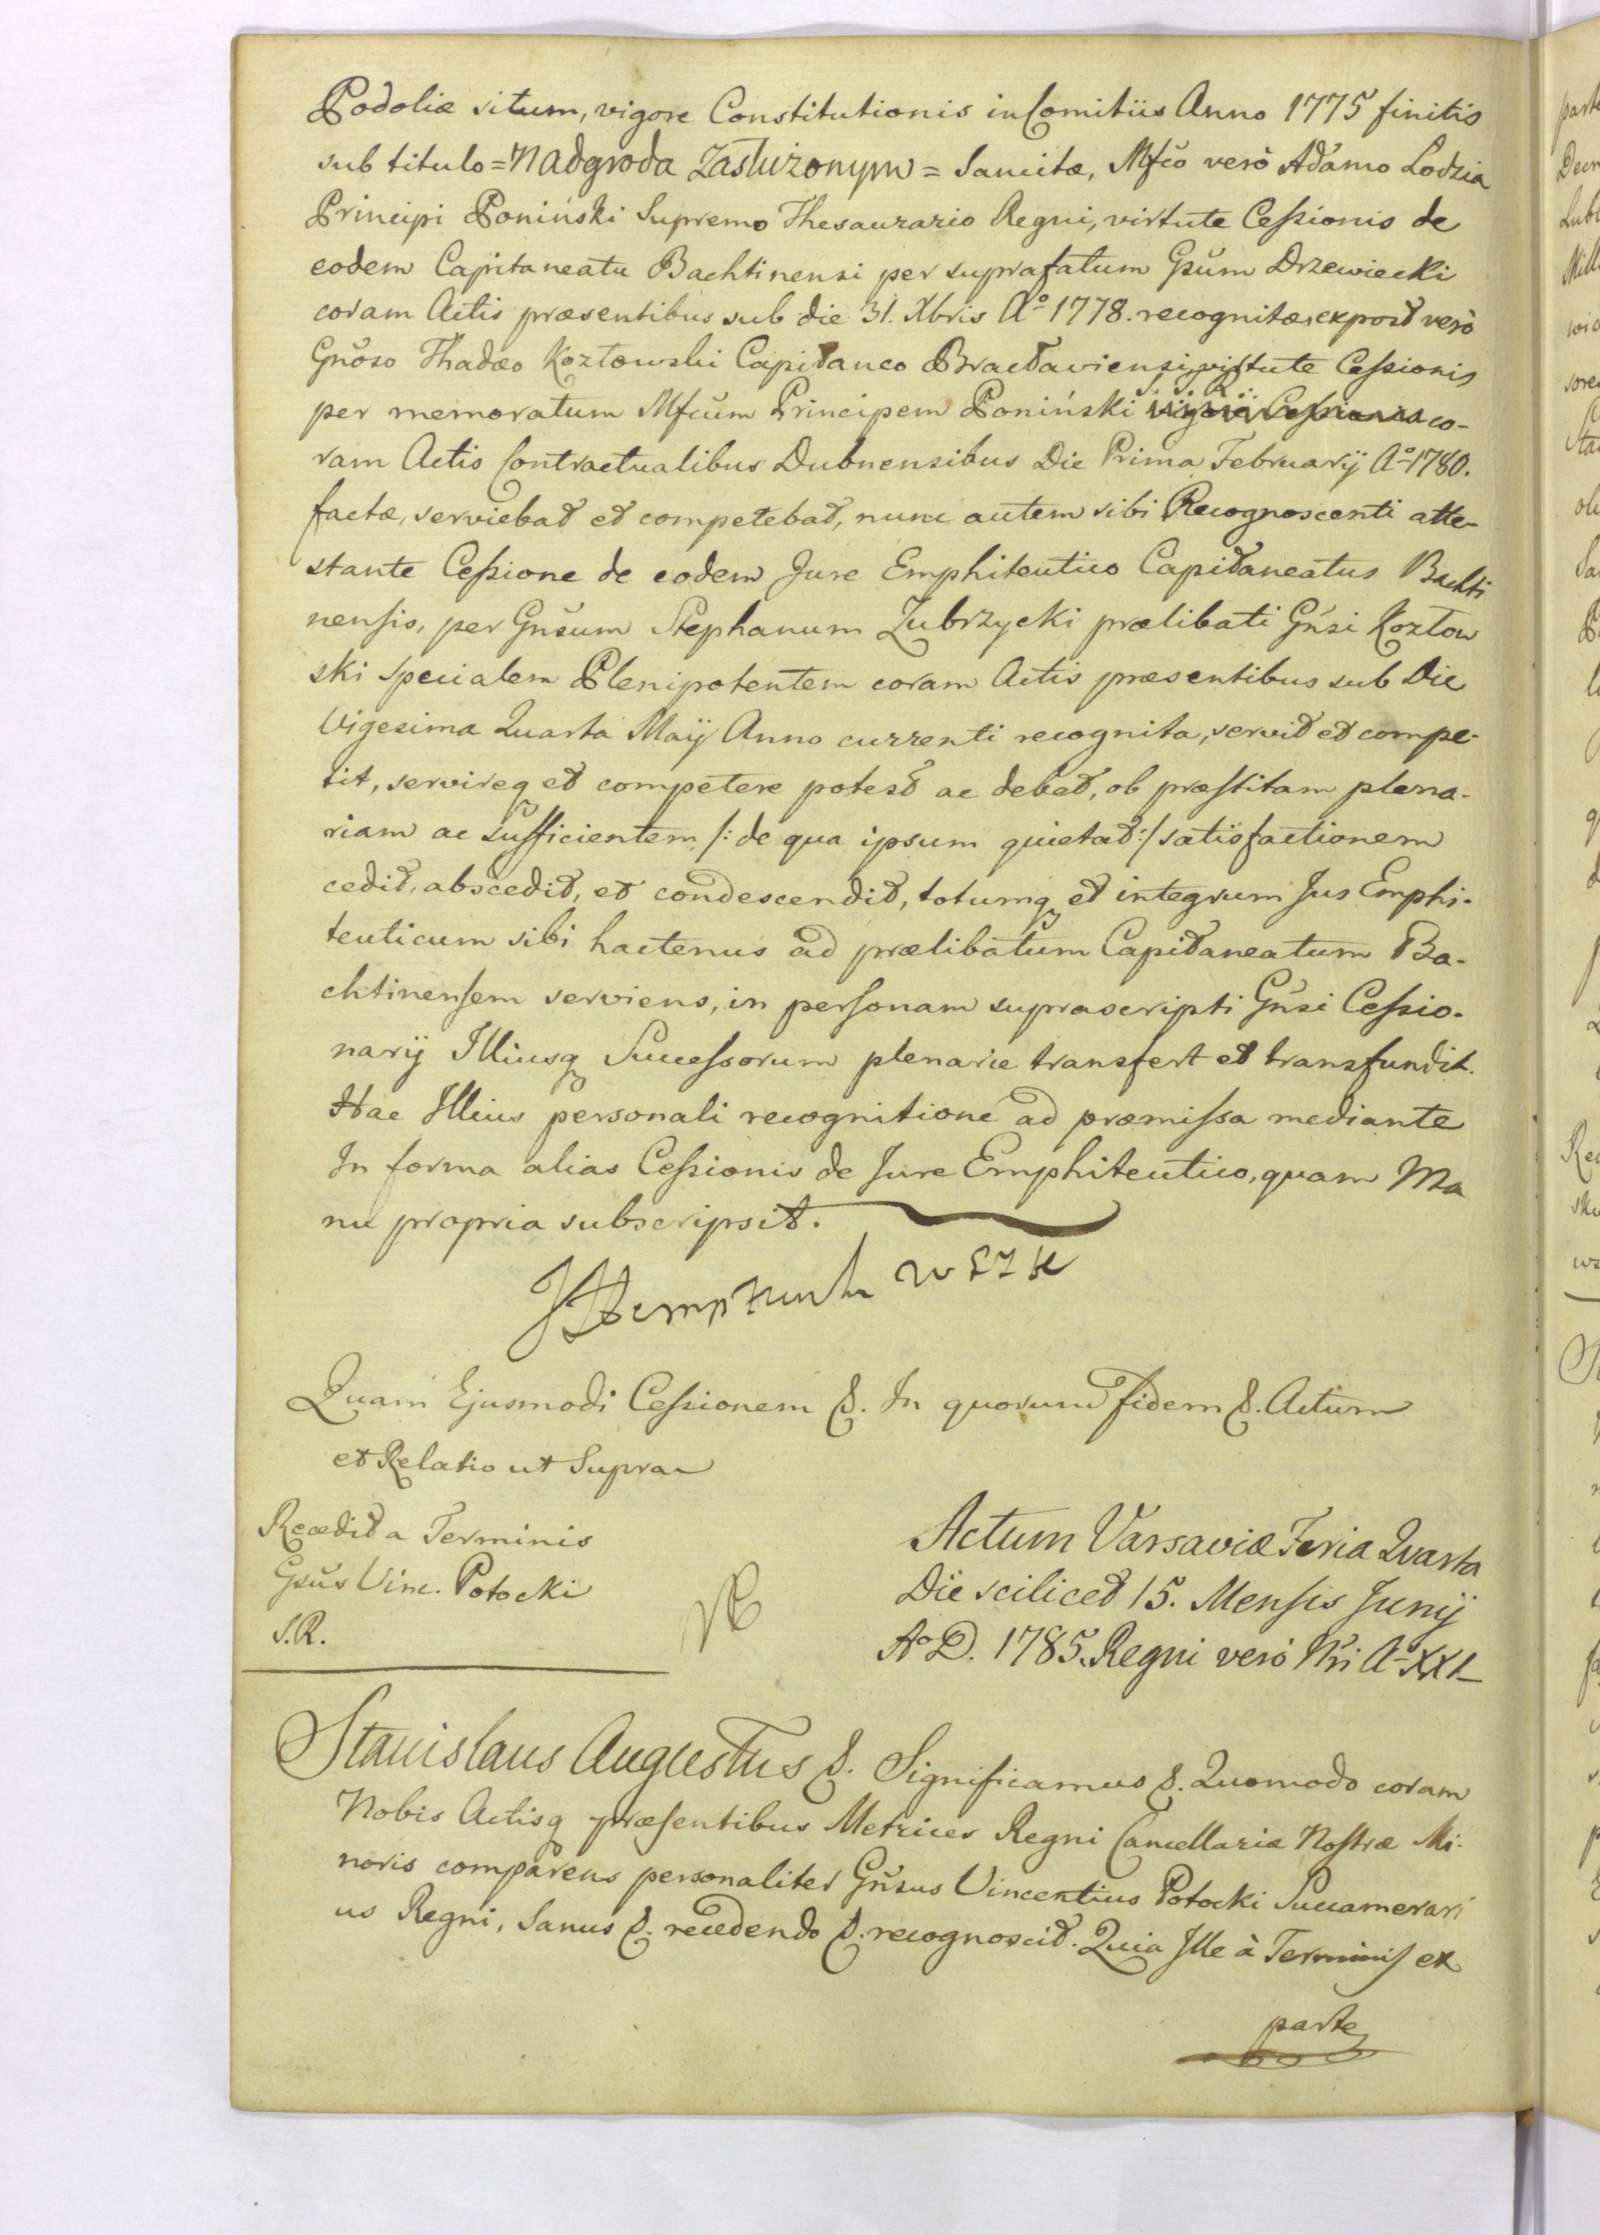 Podoliæ situm, vigore Constitutionis in Comitiis Anno 1775 finitis
sub titulo = Nadgroda Zasłużonym = Sancitæ, Mfco verò Adamo Lodzia
Principi Poniński Supremo Thesaurario Regni, virtute Ceſsionis de
eodem Capitaneatu Bachtinensi per suprafatum Gsum Drzewiecki
coram Actis præsentibus sub die 31. Xbris Aº 1778. recognitæ, expost verò
Gnoso Thadæo Kozłowski Capitaneo Bractaviensi, virtute Ceſsionis
per memoratum Mfcum Principem Poniński vigore Ceſsionis co-
ram Actis Contractualibus Dubnensibus Die Prima Februarij Aº 1780.
factæ, serviebat et competebat, nunc autem sibi Recognoscenti atte-
stante Ceſsione de eodem Jure Emphiteutico Capitaneatus Bachti
nenſis, per Gnsum Stephanum Zubrzycki prælibati Gnsi Kozłow
ski Specialem Plenipotentem coram Actis præsentibus sub Die
Vigesima Quarta Maij Anno currenti recognita, servit et compe-
tit, servireq et competere potest ac debet, ob præſtitam plena-
riam ac sufficientem /: de qua ipsum quietat :/ satisfactionem
cedit, abscedit, et condescendit, totumq et integrum Jus Emphi-
teuticum sibi hactenus ad prælibatum Capitaneatum Ba-
chtinenſem serviens, in perſonam suprascripti Gnsi Ceſsio-
narij Illiusq Succeſsorum plenarie transfert et transfundit.
Hac Illius personali recognitione ad præmiſsa mediante
In forma alias Ceſsionis de Jure Emphiteutico, quam Ma
nu propria subscripsit.
Quam Ejusmodi Ceſsionem &. In quorum fidem &. Actum
et Relatio ut Supra
Recedit a Terminis
Gsus Vinc. Potocki
S.R.
Actum Varsaviæ Feria Quarta
Die scilicet 15. Menſis Junij
Aº D. 1785. Regni verò Nri Aº XXI
Stanislaus Augustus &. Significamus &. Quomodo coram
Nobis Actisq præſentibus Metrices Regni Cancellariæ Noſtræ Mi-
noris comparens personaliter Gnsus Vincentius Potocki Succamerari
us Regni, Sanus &. recedendo &. recognoscit. Quia Ille à Terminiſ ex
parte